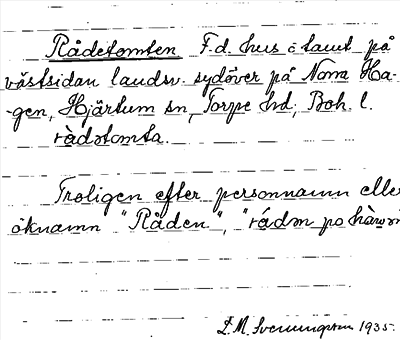 Rådetomten F.d. hus o tomt på
västsidan landsv. sydöver på Norra Ha-
-gen, Hjärtum sn, Torpe hd, Boh. l.
ràdətomta.
Troligen efter personnamn elle
öknamn "Råden", "rádən po
S. M. Svenungsson 1935.